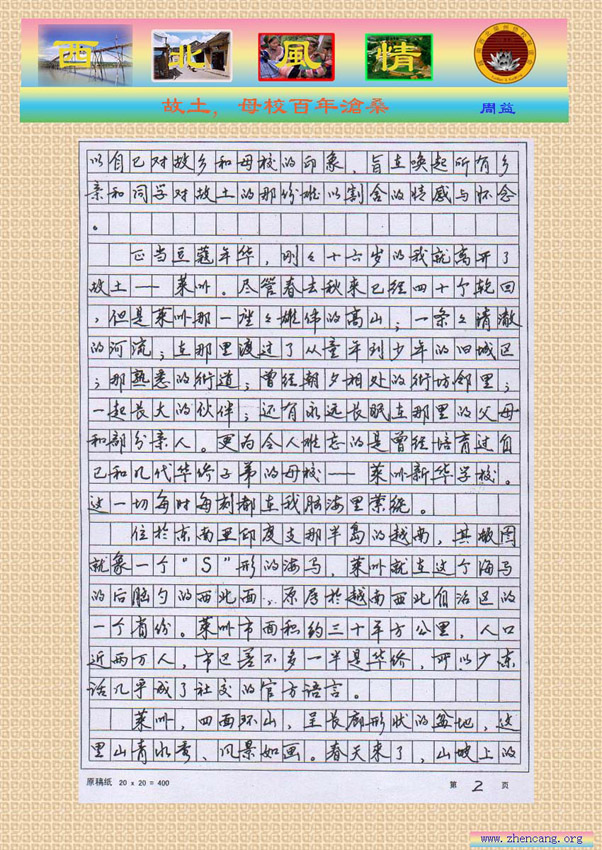 西北風情
故土，母校百年滄桑
周益
以自己对故乡和母校的印象，旨在唤起所有乡
亲和同学对故土的那份难以割舍的情感与怀念
。
正当豆蔻年华，刚々十六岁的我就离开了
故土——莱州。尽管春去秋来已经四十个乾回
，但是莱州那一座々雄伟的高山；一条々清澈
的河流；在那里渡过了从童年到少年的旧城区
；那熟悉的街道；曾经朝夕相处的街坊邻里；
一起长大的伙伴；还有永远长眠在那里的父母
和部分亲人。更为令人难忘的是曾经培育过自
己和几代华侨子弟的母校——莱州新华学校。
这一切每时每刻都在我脑海里萦绕。
位於东南亚印度支那半岛的越南，其版图
就象一个“S”形的海马，莱州就在这个海马
的后脑勺的西北面，原属於越南西北自治区的
一个省份。莱州市面积约三十平方公里，人口
近两万人，市区差不多一半是华侨，所以广东
话几乎成了社交的官方语言。
莱州，四面环山，呈长廊形状的盆地，这
里山青水秀、风景如画。春天来了，山坡上的
原稿纸 20 x 20 = 400
第 2 页
www.zhencang.org